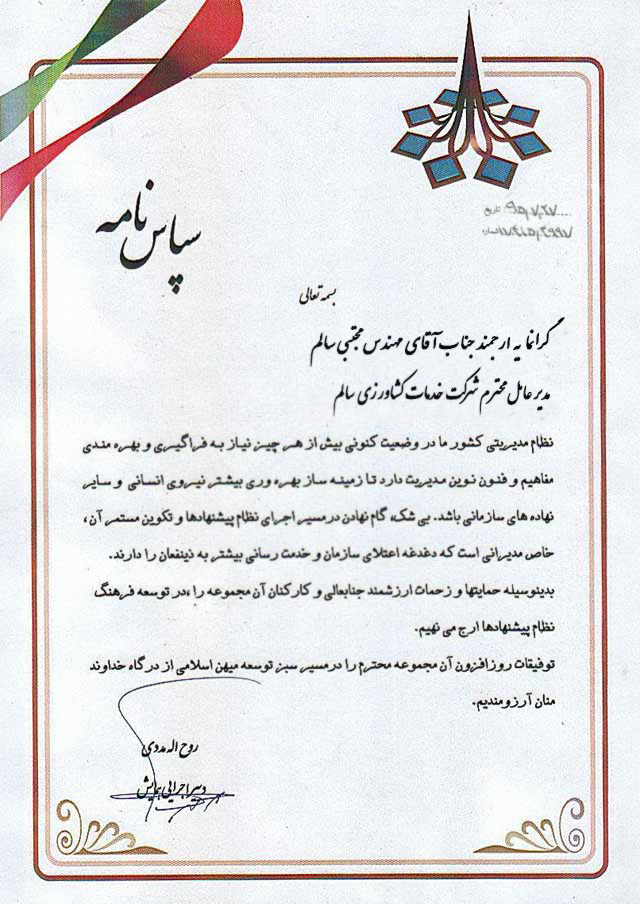 سپاس نامه
تاریخ: ۹۵٫۷٫۲۷....
شماره:
بسمه تعالی
گرانمایه ارجمند جناب آقای مهندس مجتبی سالم
مدیر عامل محترم شرکت خدمات کشاورزی سالم
نظام مدیریتی کشور ما در وضعیت کنونی بیش از هر چیز نیاز به فراگیری و بهره مندی
مفاهیم و فنون نوین مدیریت دارد تا زمینه ساز بهره وری بیشتر نیروی انسانی و سایر
نهاده های سازمانی باشد. بی شک، گام نهادن در مسیر اجرای نظام پیشنهادها و تکوین مستمر آن،
خاص مدیرانی است که دغدغه اعتلای سازمان و خدمت رسانی بیشتر به ذینفعان را دارند.
بدینوسیله حمایتها و زحمات ارزشمند جنابعالی و کارکنان آن مجموعه را ،در توسعه فرهنگ
نظام پیشنهادها ارج می نهیم.
توفیقات روزافزون آن مجموعه محترم را در مسیر سبز توسعه میهن اسلامی از درگاه خداوند
منان آرزومندیم.
روح اله مددی
دبیر اجرایی همایش